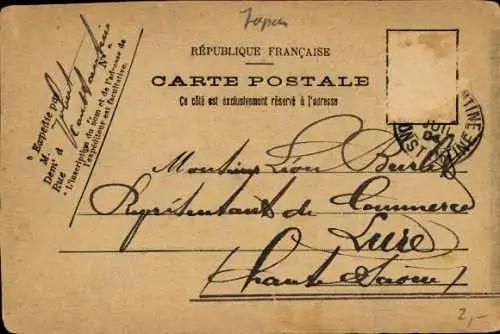 Japan
RÉPUBLIQUE FRANÇAISE
CARTE POSTALE
Ce côté est exclusivement réservé à l'adresse
Expédiée par
M
Demt à
Rue N°
L'inscription du nom et de l'adresse de
l'expéditeur est facultative.
Monsieur Léon
Représentant de Commerce
Lure
(Haute Saone)
2,-